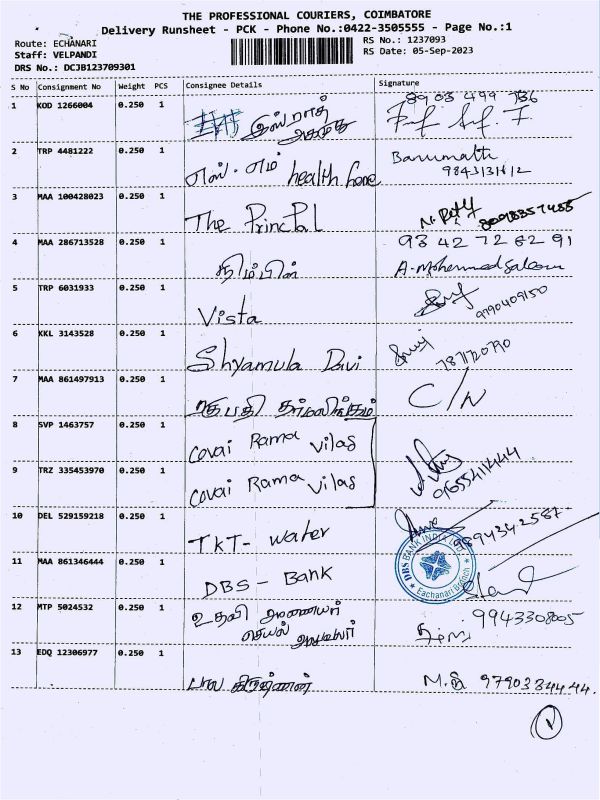 THE PROFESSIONAL COURIERS, COIMBATORE
Delivery Runsheet - PCK - Phone No.:0422-3505555 - Page No.:1
Route: ECHANARI
Staff: VELPANDI
DRS No.: DCJB123709301
RS No.: 1237093
RS Date: 05-Sep-2023
S No Consignment No Weight PCS Consignee Details Signature
1 KOD 1266004 0.250 1
2 TRP 4481222 0.250 1 எஸ்.எம் health Care Banumathi
3 MAA 100428023 0.250 1 The PrinciPal
4 MAA 286713528 0.250 1 93 42 72 62 91
A. Mohammed Saleem
5 TRP 6031933 0.250 1 Vista 9790409150
6 KKL 3143528 0.250 1 Shyamula Devi
7 MAA 861497913 0.250 1 ரகுபதி தர்மலிங்கம் C/N
8 SVP 1463757 0.250 1 Covai Rama Vilas
9 TRZ 335453970 0.250 1 Covai Rama Vilas 9655411444
10 DEL 529159218 0.250 1 TKT- water 9894342587
11 MAA 861346444 0.250 1 DBS - Bank
DBS BANK INDIA LTD
Eachanari Branch
12 MTP 5024532 0.250 1 உதவி ஆணையர்
செயல் அலுவலர்
9943308005
13 EDQ 12306977 0.250 1 பால கிருஷ்ணன்